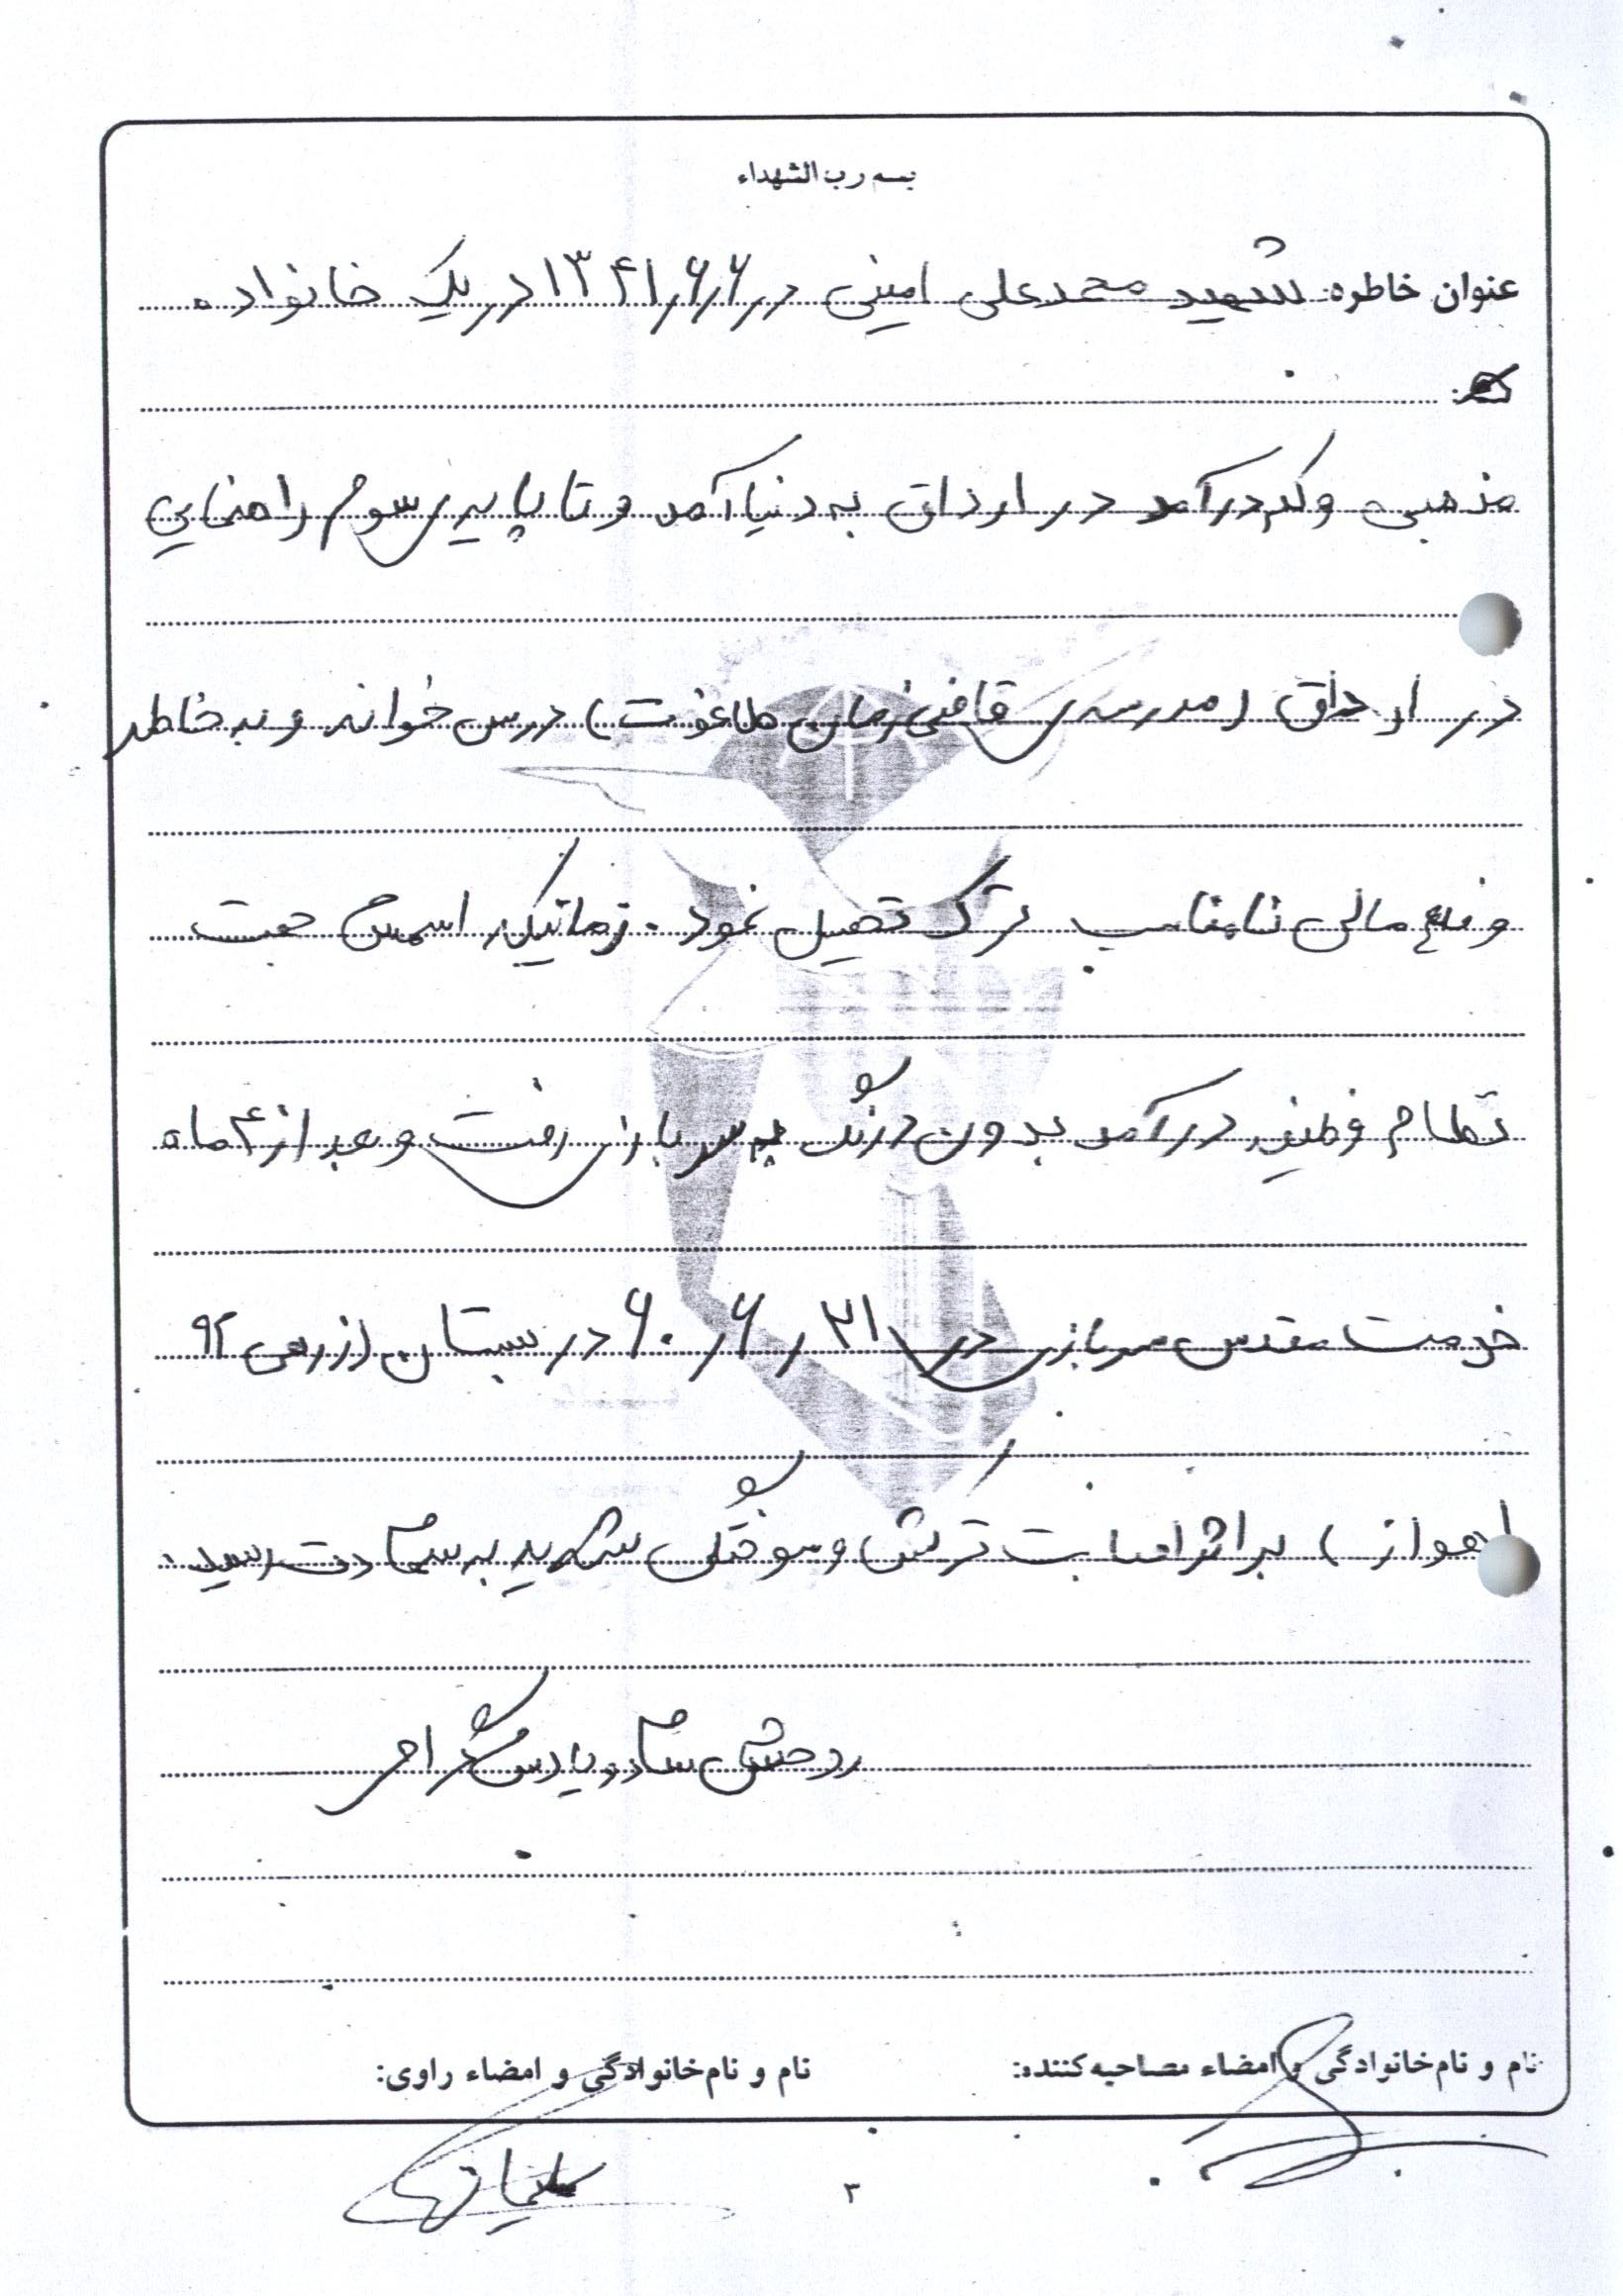 بسم رب الشهداء
عنوان خاطره: شهید محمدعلی امینی در ۱۳۴۱/۶/۶ در یک خانواده
مذهبی و کم درآمد در ارداق به دنیا آمد و تا پایه ی سوم راهنمایی
در ارداق (مدرسه ی قاضی زمان طاغوت) درس خواند و به خاطر
وضع مالی نامناسب ترک تحصیل نمود. زمانیکه اسمش جهت
نظام وظیفه درآمد بدون درنگ به سربازی رفت و بعد از ۴ ماه
خدمت مقدس سربازی در ۳۱ / ۶ / ۶۰ در بستان (زرهی ۹۲
اهواز) بر اثر اصابت ترکش و سوختگی شدید به شهادت رسید.
روحش شاد و یادش گرامی
نام و نام خانوادگی و امضاء مصاحبه کننده:
نام و نام خانوادگی و امضاء راوی:
۳